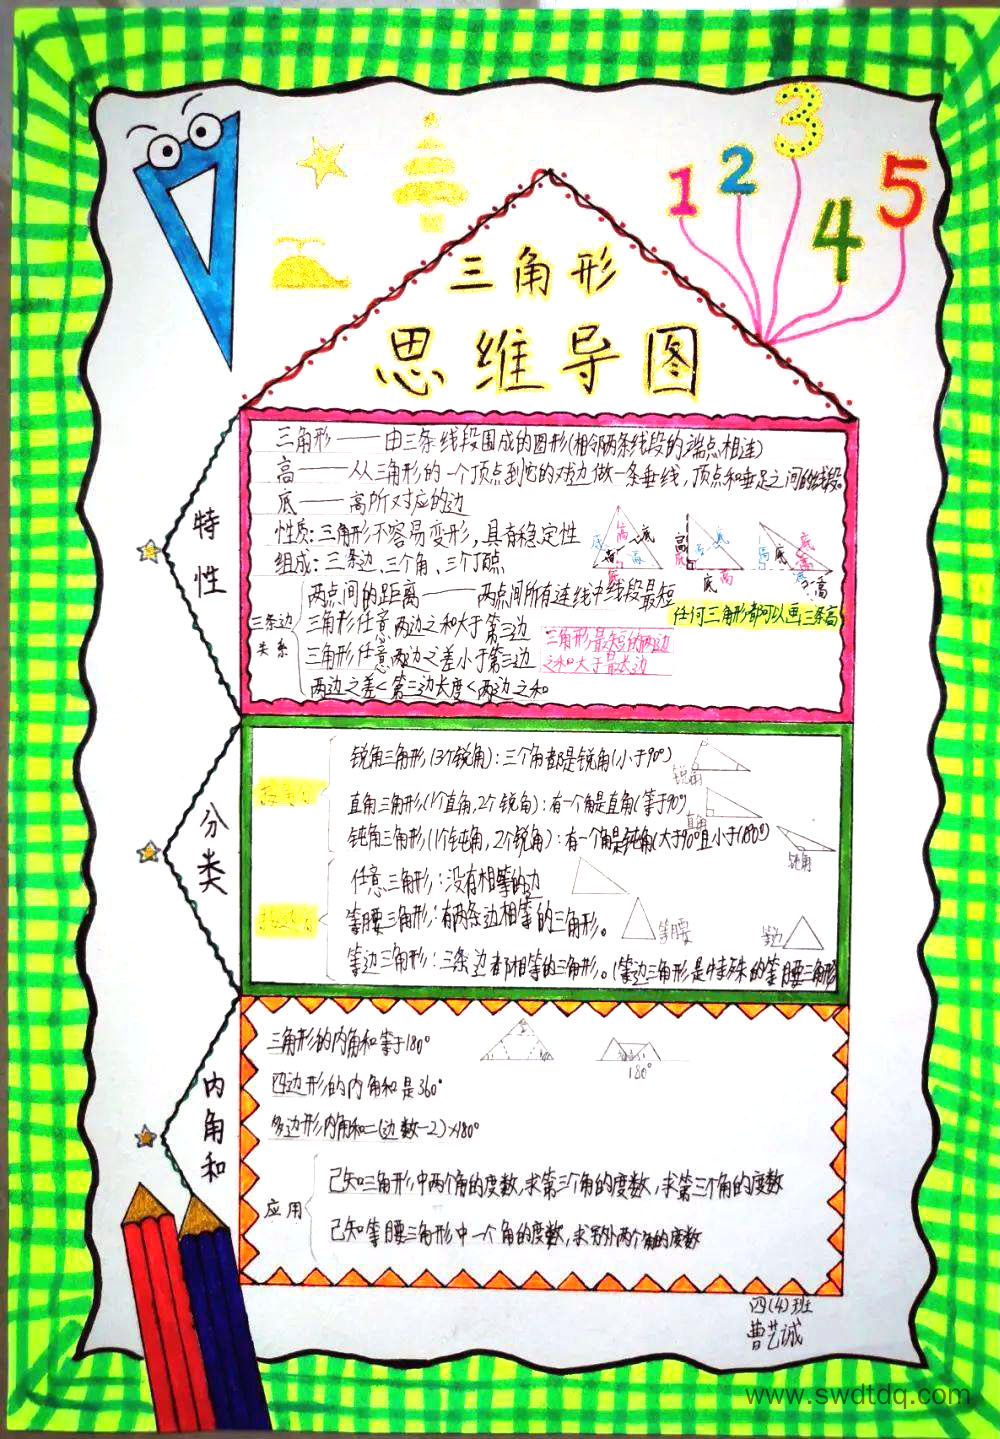 1
2
3
4
5
三角形
思维导图
特性
三角形——由三条线段围成的图形(相邻两条线段的端点相连)
高——从三角形的一个顶点到它的对边做一条垂线,顶点和垂足之间的线段。
底——高所对应的边
性质:三角形不容易变形,具有稳定性
组成:三条边、三个角、三个顶点
高 底 底 高
高 底 高
底 高
任何三角形都可以画三条高
三条边关系
两点间的距离——两点间所有连线中线段最短
三角形任意两边之和大于第三边
三角形任意两边之差小于第三边
两边之差<第三边长度<两边之和
三角形最短的两边
之和大于最长边
分类
锐角三角形(3个锐角):三个角都是锐角(小于90°)
锐角
直角三角形(1个直角,2个锐角):有一个角是直角(等于90°)
直角
钝角三角形(1个钝角,2个锐角):有一个角是钝角(大于90°且小于180°)
钝角
任意三角形:没有相等的边
等腰三角形:有两条边相等的三角形。
等腰
等边
等边三角形:三条边都相等的三角形。(等边三角形是特殊的等腰三角形
内角和
三角形的内角和等于180°
180°
四边形的内角和是360°
多边形内角和=(边数-2)×180°
应用
已知三角形中两个角的度数,求第三个角的度数,求第三个角的度数
已知等腰三角形中一个角的度数,求另外两个角的度数
四(4)班
曹艺诚
www.swdtdq.com